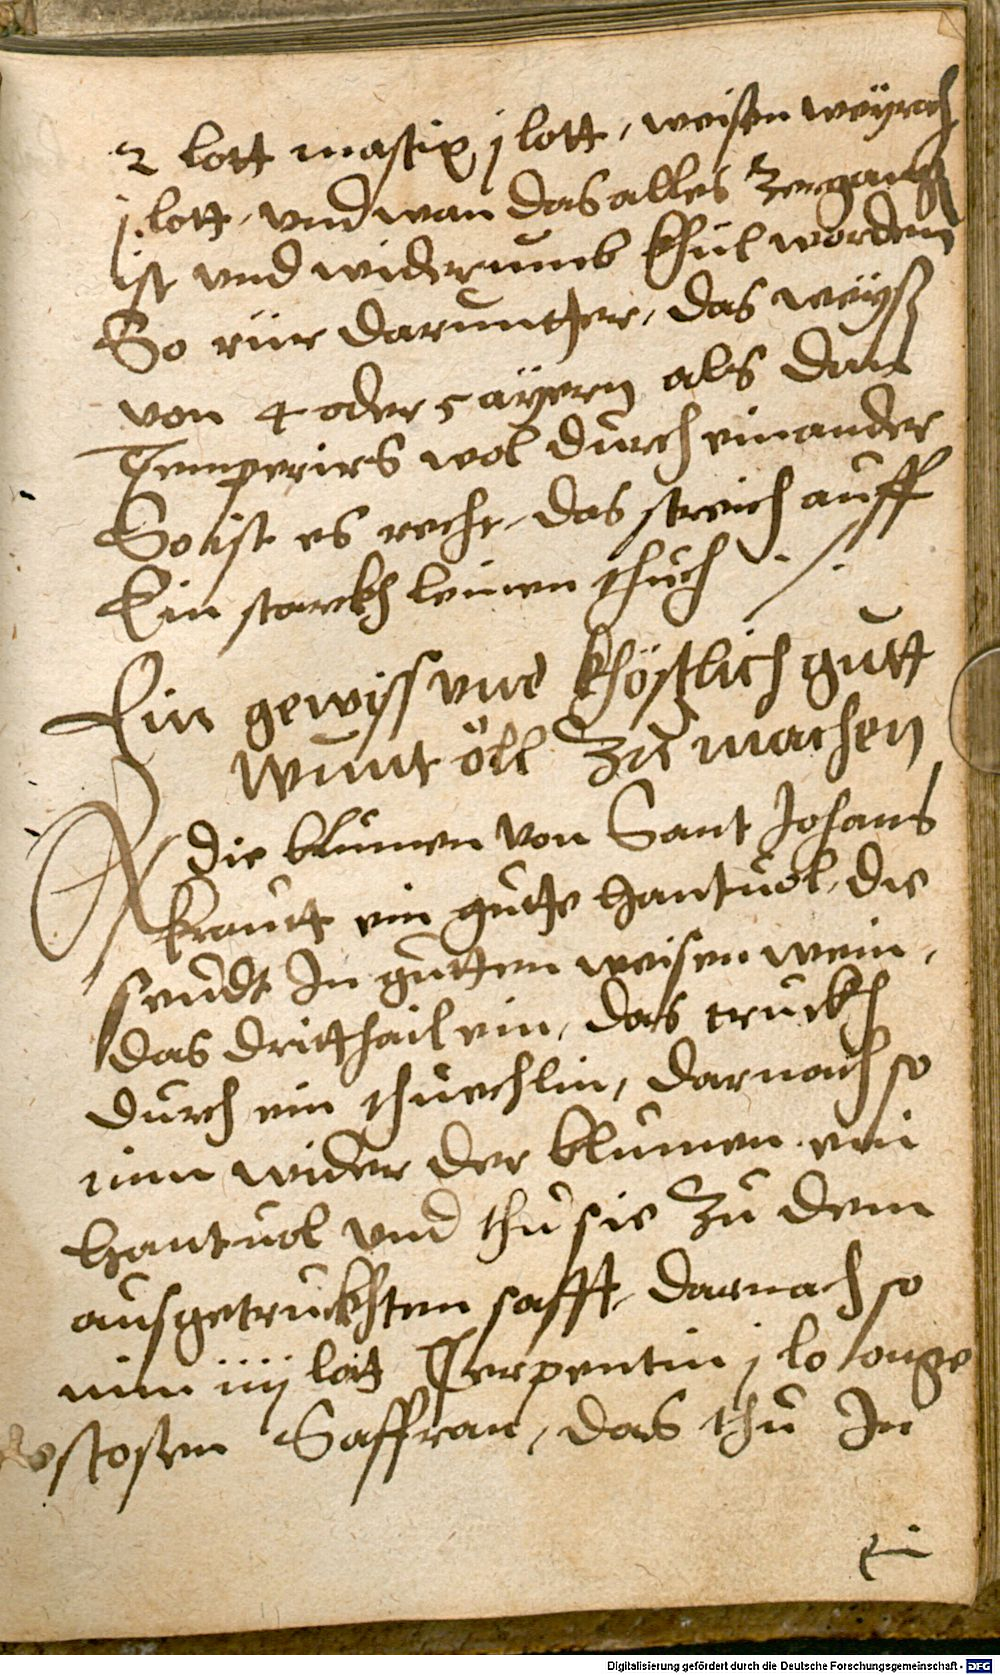 2 lott mastix j lott, weissen weÿrach
j lott, vnd wan das alles Zergangen
ist vnd widerumb khül worden
So rür darunther, das weÿß
von 4 oder 5 aÿern als dan
Temperirs wol durch einander
So ist es recht, das streich auff
Ein starckh leinen thuch ./.
Ein gewiss vnd khöstlich gutt
wunt öll Zu machen
die blumen von Sant Johans
krautt ein guthe hantuol, die
seudt In gutten weisen wein,
das dritthail ein, das truckh
durch ein thuechlin, darnach so
nim wider der blumen ein
hantuol vnd thu sie Zu dem
ausgetruckhten safft, darnach so
nim iiij lott Terpentin j lo
gestosen Saffran, das thu In
Digitalisierung gefördert durch die Deutsche Forschungsgemeinschaft - DFG